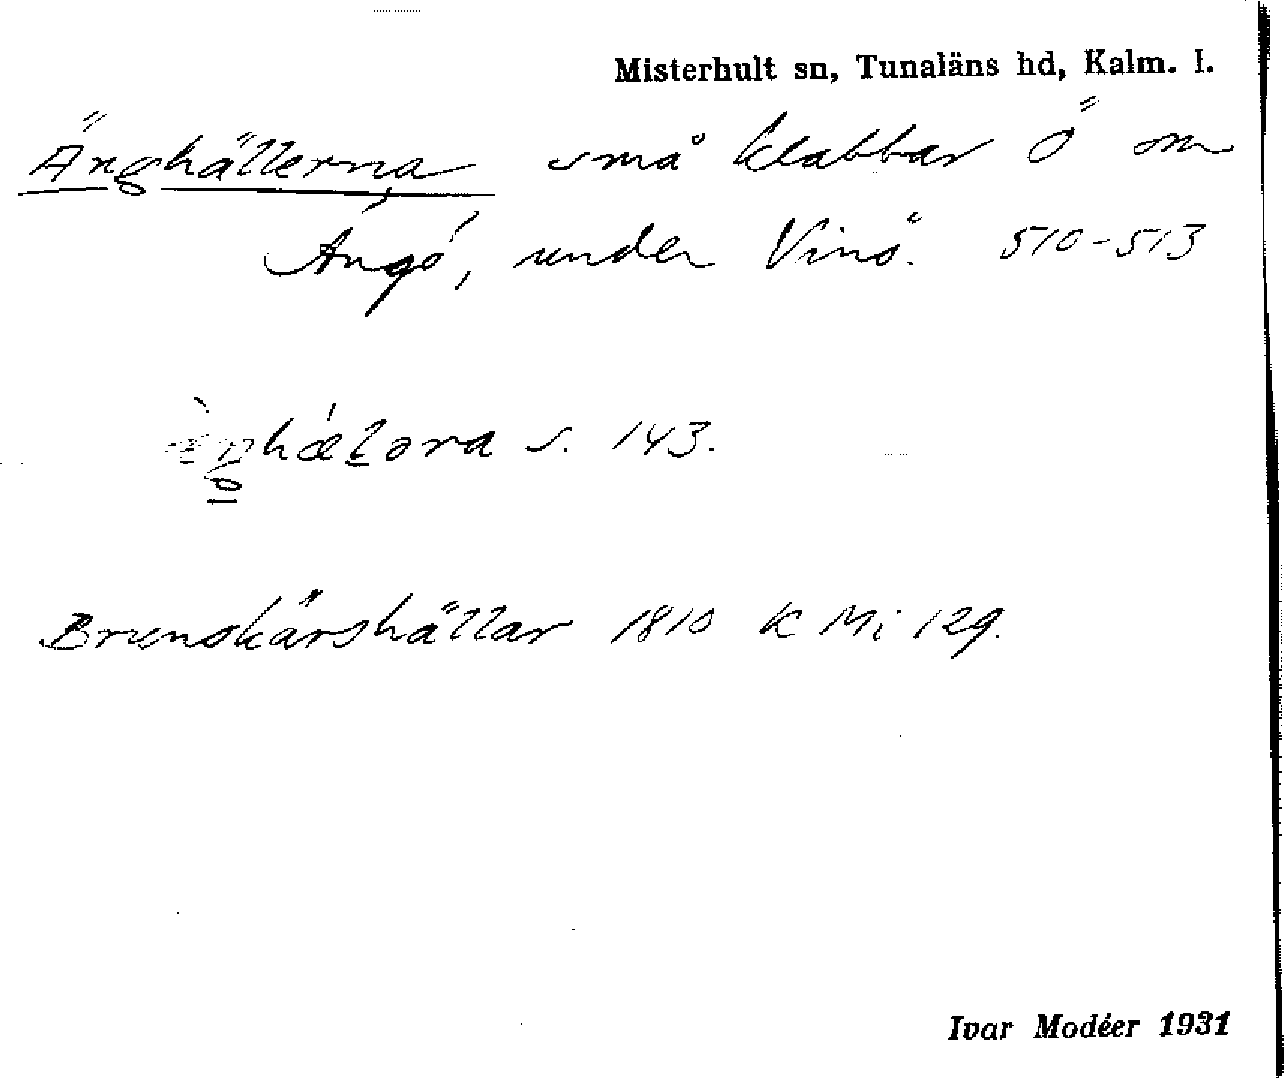 Misterhult sn, Tunaläns hd, Kalm. l.
Änghällerna små klabbar Ö om
Ängö, under Vinö. 510-513
s. 143.
Brunskärshällar 1810 K Mi 129.
Ivar Modéer 1931